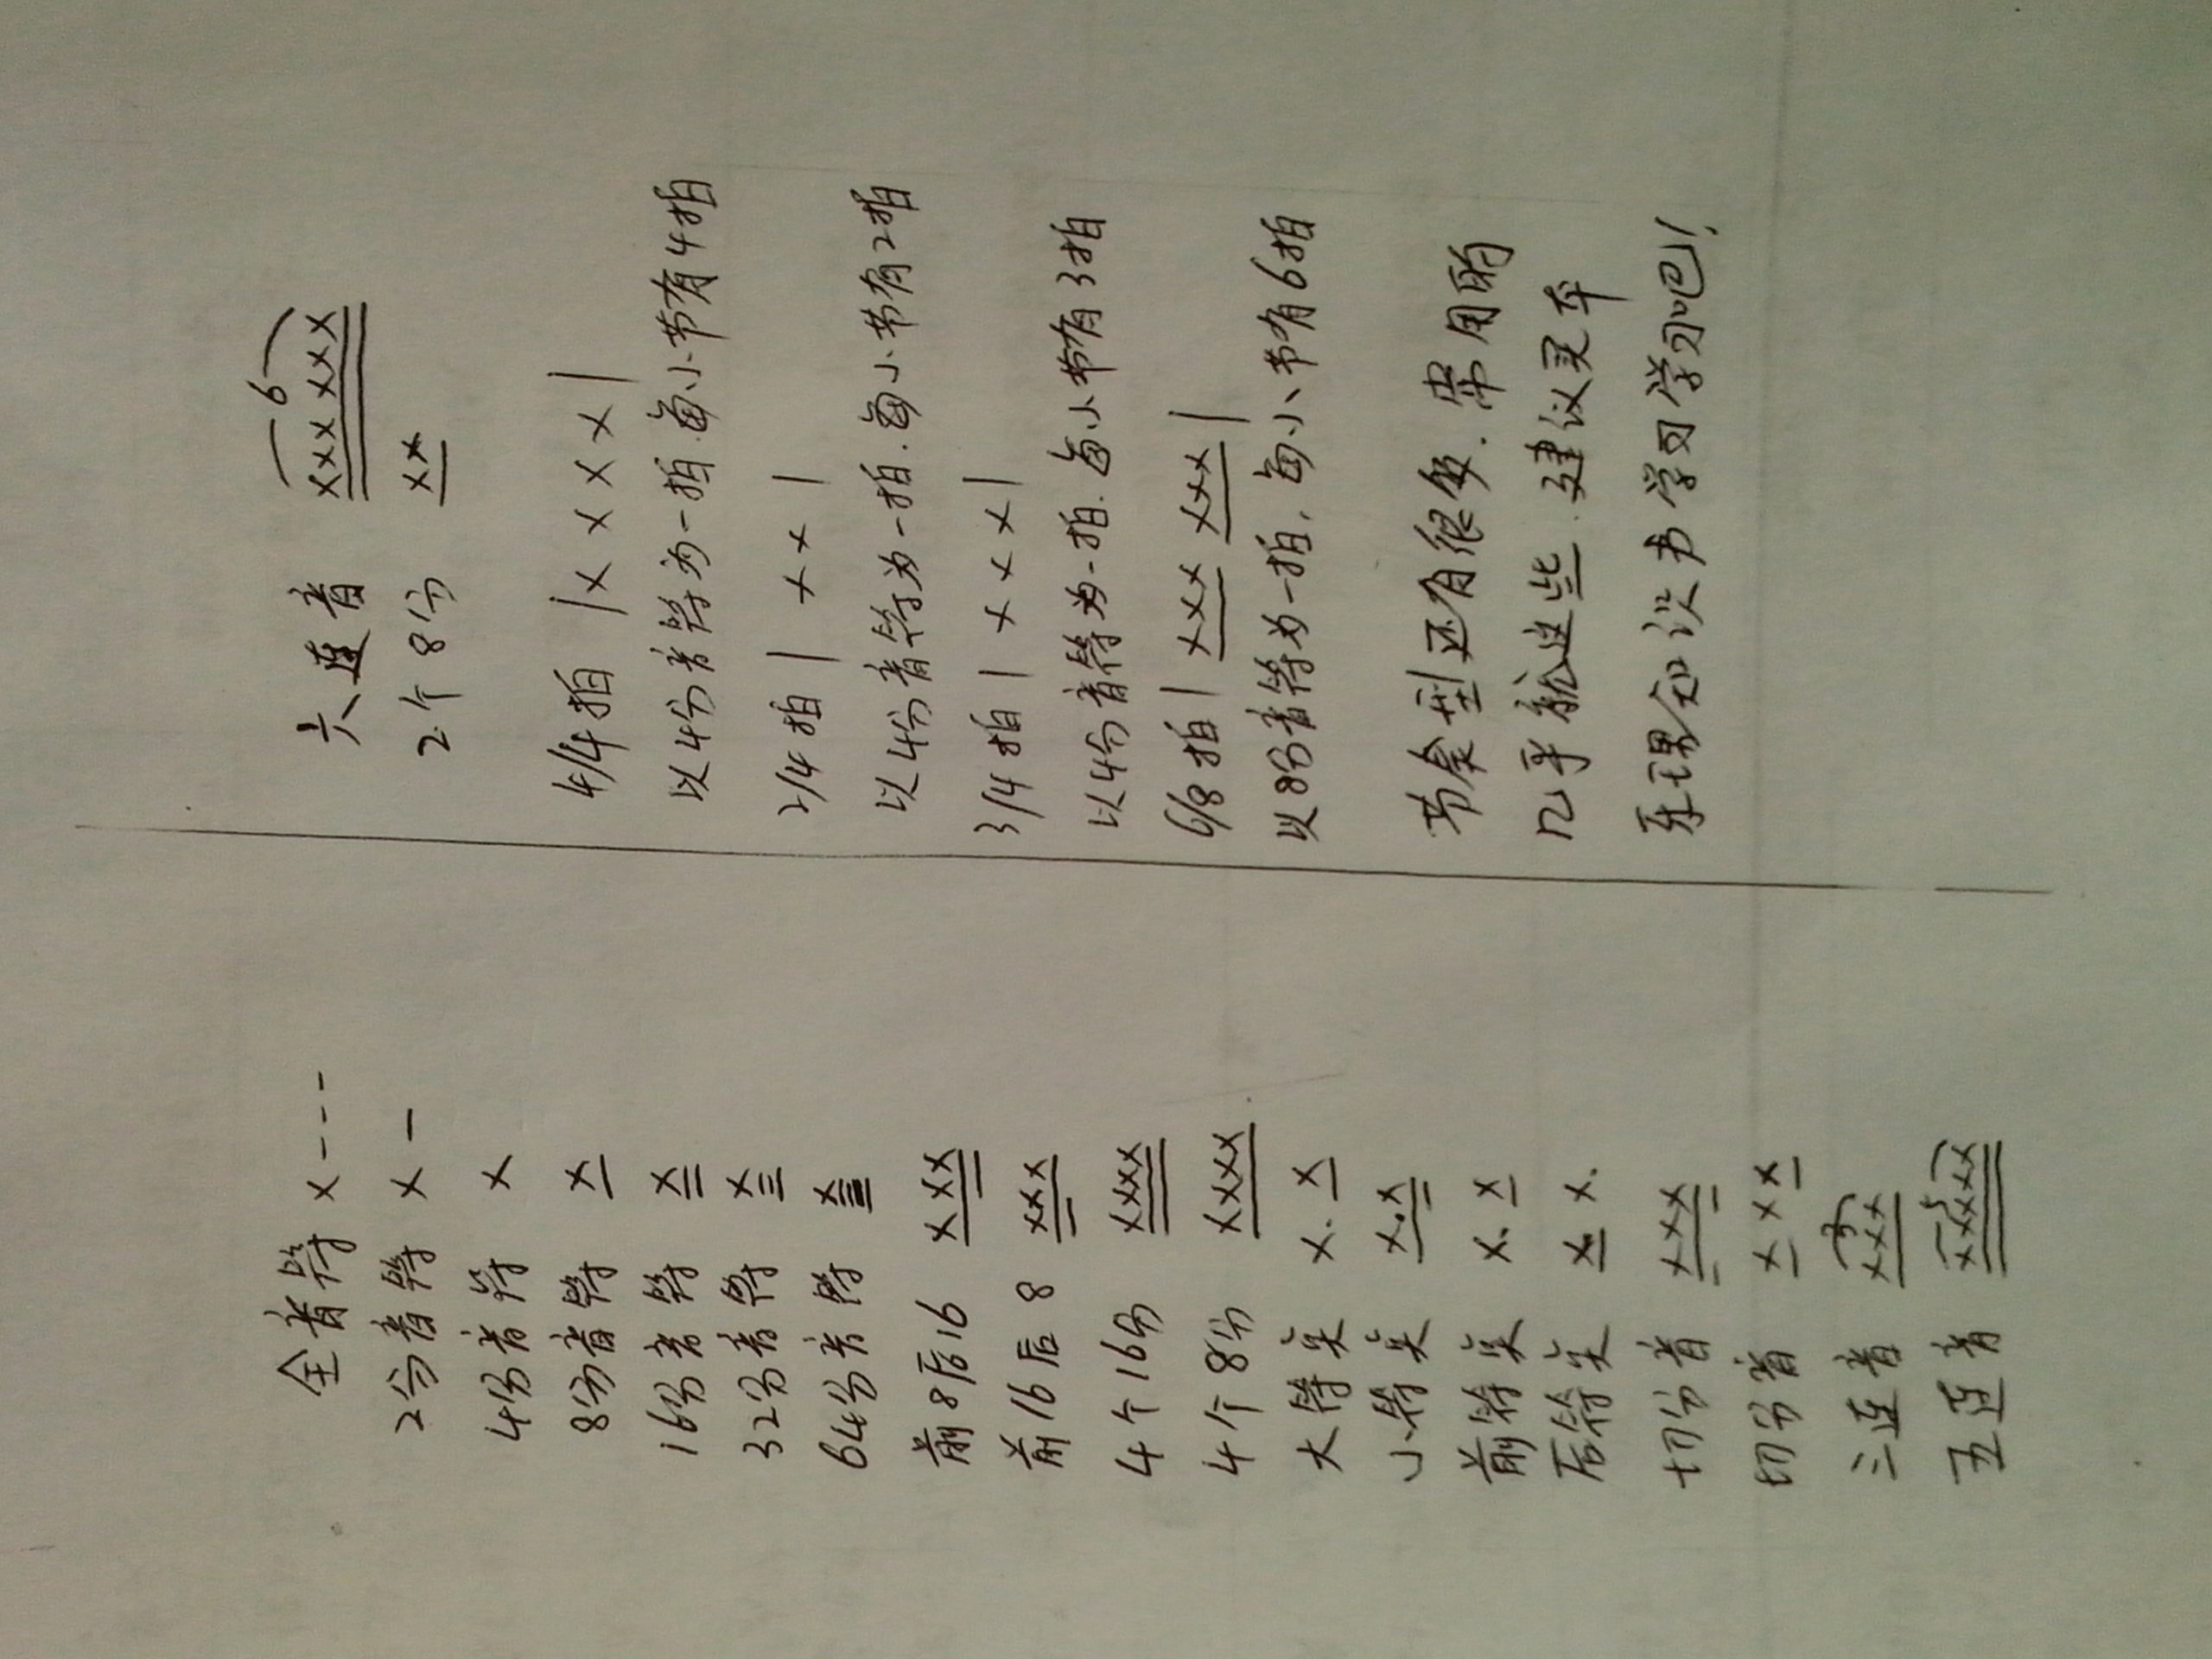 全音符 X - - -
2分音符 X -
4分音符 X
8分音符 X
16分音符 X
32分音符 X
64分音符 X
前8后16 X XX
前16后8 XXX
4个16分 XXXX
4个8分 XXXX
大符点 X. X
小符点 X.X
前符点 X. X
后符点 X X.
切分音 XXX
切分音 X X X
三连音 XXX 3
五连音 XXXXX 5
六连音 XXX XXX 6
2个8分 XX
4/4拍 | X X X X |
以4分音符为一拍.每小节有4拍
2/4拍 | X X |
以4分音符为一拍.每小节有2拍
3/4拍 | X X X |
以4分音符为一拍.每小节有3拍
6/8拍 | XXX XXX |
以8分音符为一拍.每小节有6拍
节奏型还有很多.常用的
几乎就这些.建议买本
乐理知识书学习学习吧!